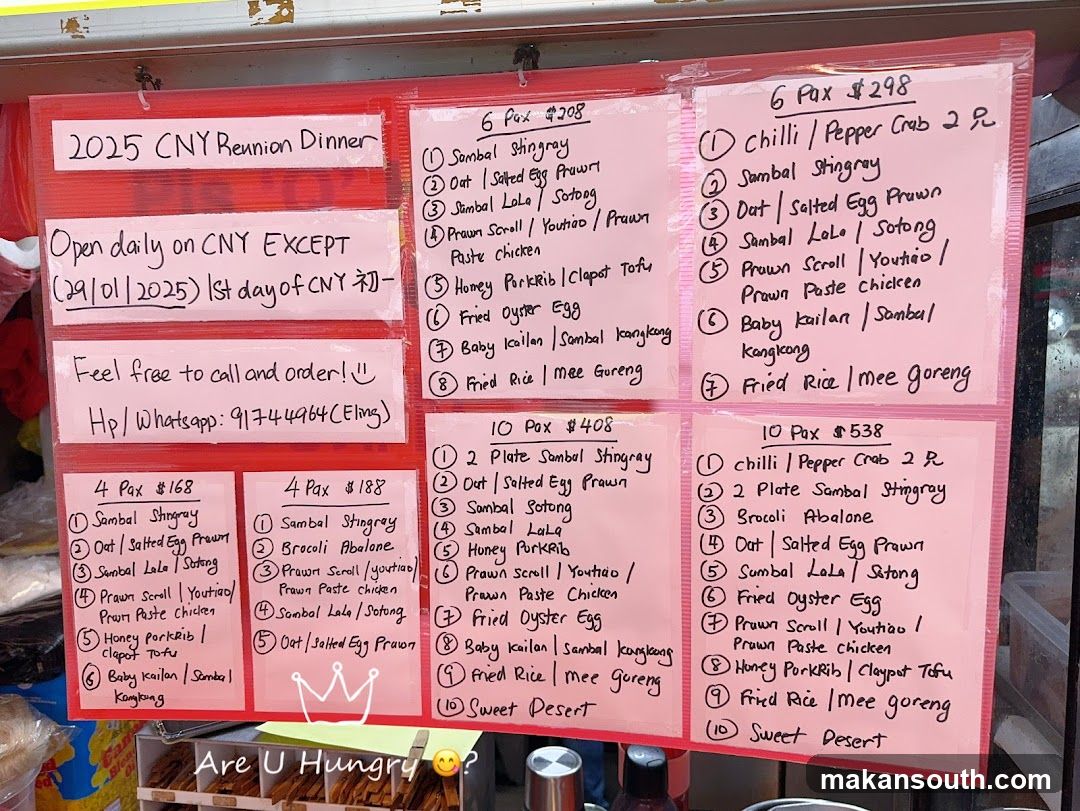 2025 CNY Reunion Dinner
Open daily on CNY EXCEPT
(29/01/2025) 1st day of CNY 初一
Feel free to call and order!
Hp/Whatsapp: 91744964 (Eling)
4 Pax $168
① Sambal Stingray
② Oat / Salted Egg Prawn
③ Sambal LaLa / Sotong
④ Prawn Scroll / Youtiao/
Prawn Paste Chicken
⑤ Honey PorkRib /
Clapot Tofu
⑥ Baby Kailan / Sambal
Kangkung
4 Pax $188
① Sambal Stingray
② Brocoli Abalone
③ Prawn Scroll / youtiao/
Prawn Paste chicken
④ Sambal LaLa / Sotong
⑤ Oat / Salted Egg Prawn
6 Pax $208
① Sambal Stingray
② Oat / Salted Egg Prawn
③ Sambal LaLa / Sotong
④ Prawn Scroll / Youtiao / Prawn
Paste Chicken
⑤ Honey PorkRib / Clapot Tofu
⑥ Fried Oyster Egg
⑦ Baby Kailan / Sambal Kangkong
⑧ Fried Rice / Mee Goreng
6 Pax $298
① Chilli / Pepper Crab 2只
② Sambal Stingray
③ Oat / Salted Egg Prawn
④ Sambal LaLa / Sotong
⑤ Prawn Scroll / Youtiao /
Prawn Paste Chicken
⑥ Baby Kailan / Sambal
Kangkong
⑦ Fried Rice / mee goreng
10 Pax $408
① 2 Plate Sambal Stingray
② Oat / Salted Egg Prawn
③ Sambal Sotong
④ Sambal LaLa
⑤ Honey PorkRib
⑥ Prawn Scroll / Youtiao /
Prawn Paste Chicken
⑦ Fried Oyster Egg
⑧ Baby Kailan / Sambal Kangkong
⑨ Fried Rice / mee goreng
⑩ Sweet Desert
10 Pax $538
① chilli / Pepper Crab 2只
② 2 Plate Sambal Stingray
③ Brocoli Abalone
④ Oat / Salted Egg Prawn
⑤ Sambal LaLa / Sotong
⑥ Fried Oyster Egg
⑦ Prawn Scroll / Youtiao /
Prawn Paste Chicken
⑧ Honey PorkRib / Claypot Tofu
⑨ Fried Rice / mee goreng
⑩ Sweet Desert
Are U Hungry 😋?
makansouth.com